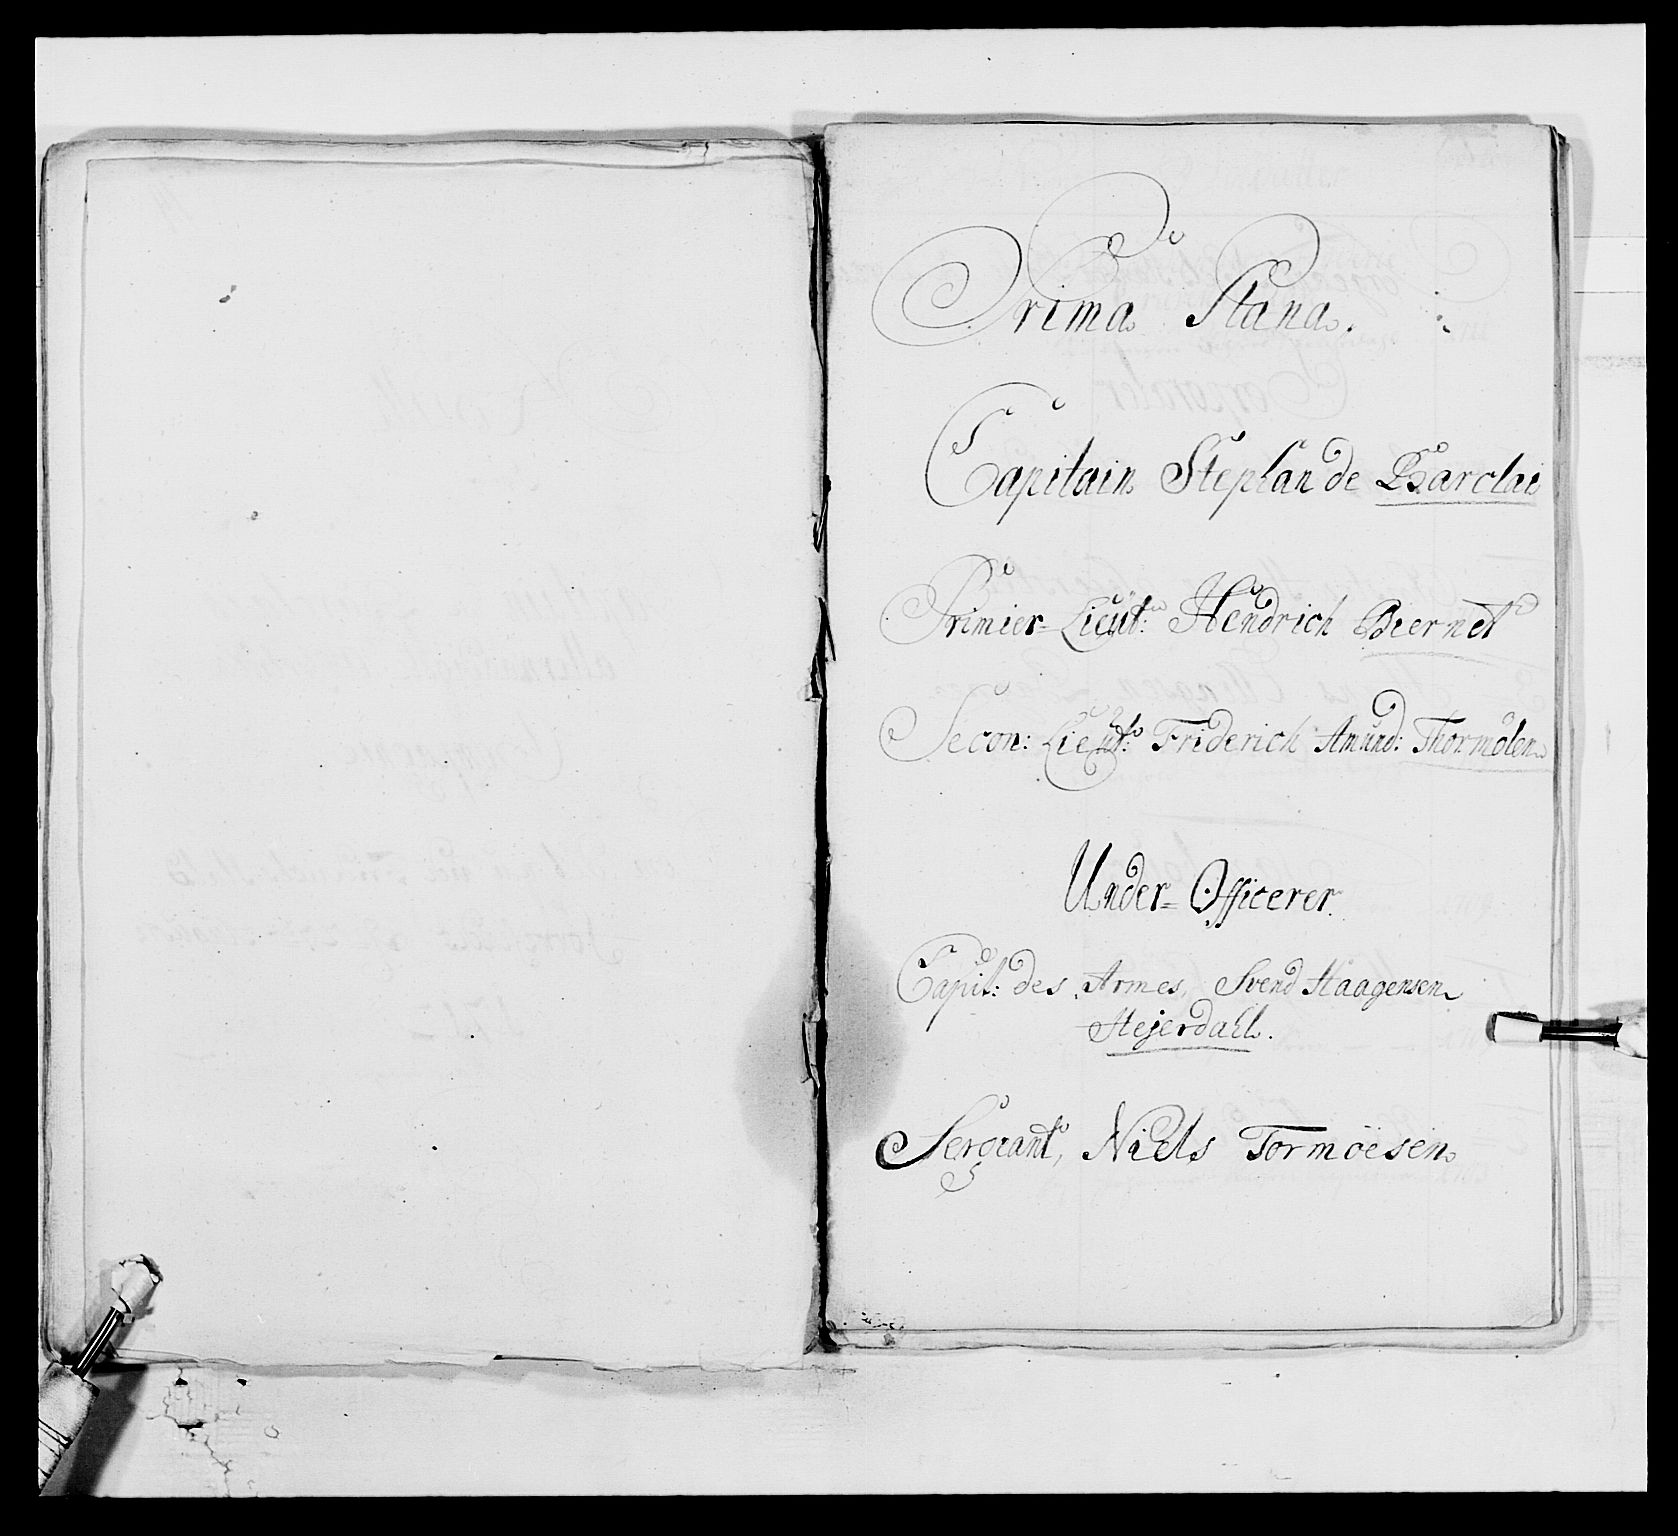 Prima Plana.
Capitain Stephan de Barclai
Primier= Lieut: Hendrich Biernet
Secon: Lieut: Friderich Amund: Thormölen
Under= Officerer
Capit: des Armes, Svend Haagensen
Hejerdahl.
Sergeant, Niels Tormoesen